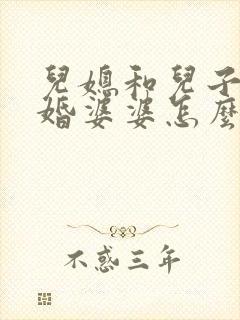 兒媳和兒子
婚婆婆怎麼
不惑三年